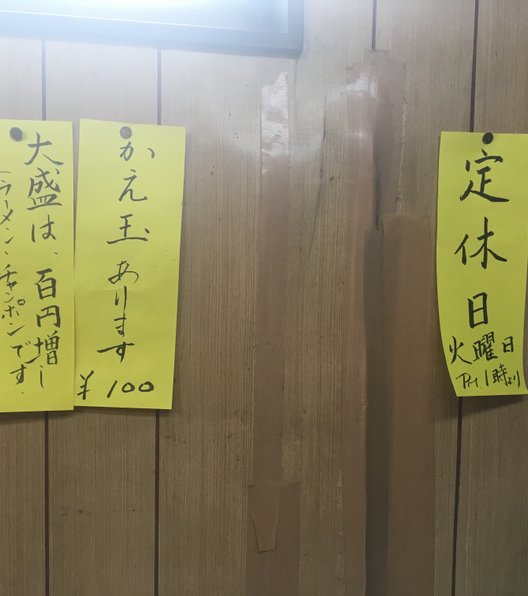 定休日
火曜日
P.M.1時より
かえ玉あります
¥100
大盛は、百円増し
(ラーメン、チャンポンです.